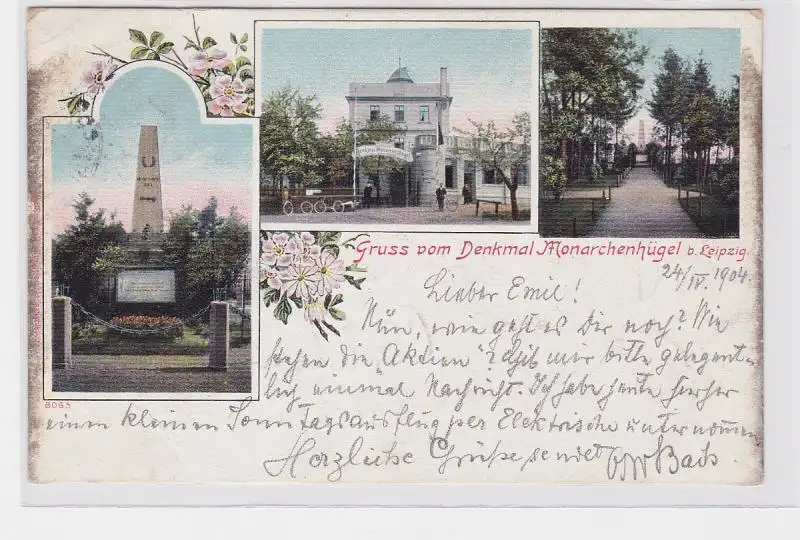 Gruss vom Denkmal Monarchenhügel b. Leipzig.
24/IV. 1904.
Lieber Emil!
Nun, wie geht es Dir noch? Wie
stehen die „Aktien"? Gib mir bitte gelegent-
lich einmal Nachricht. Ich habe heute hierher
einen kleinen Sonntagsausflug per Elektrische unternommen
Herzliche Grüße sendet
8063